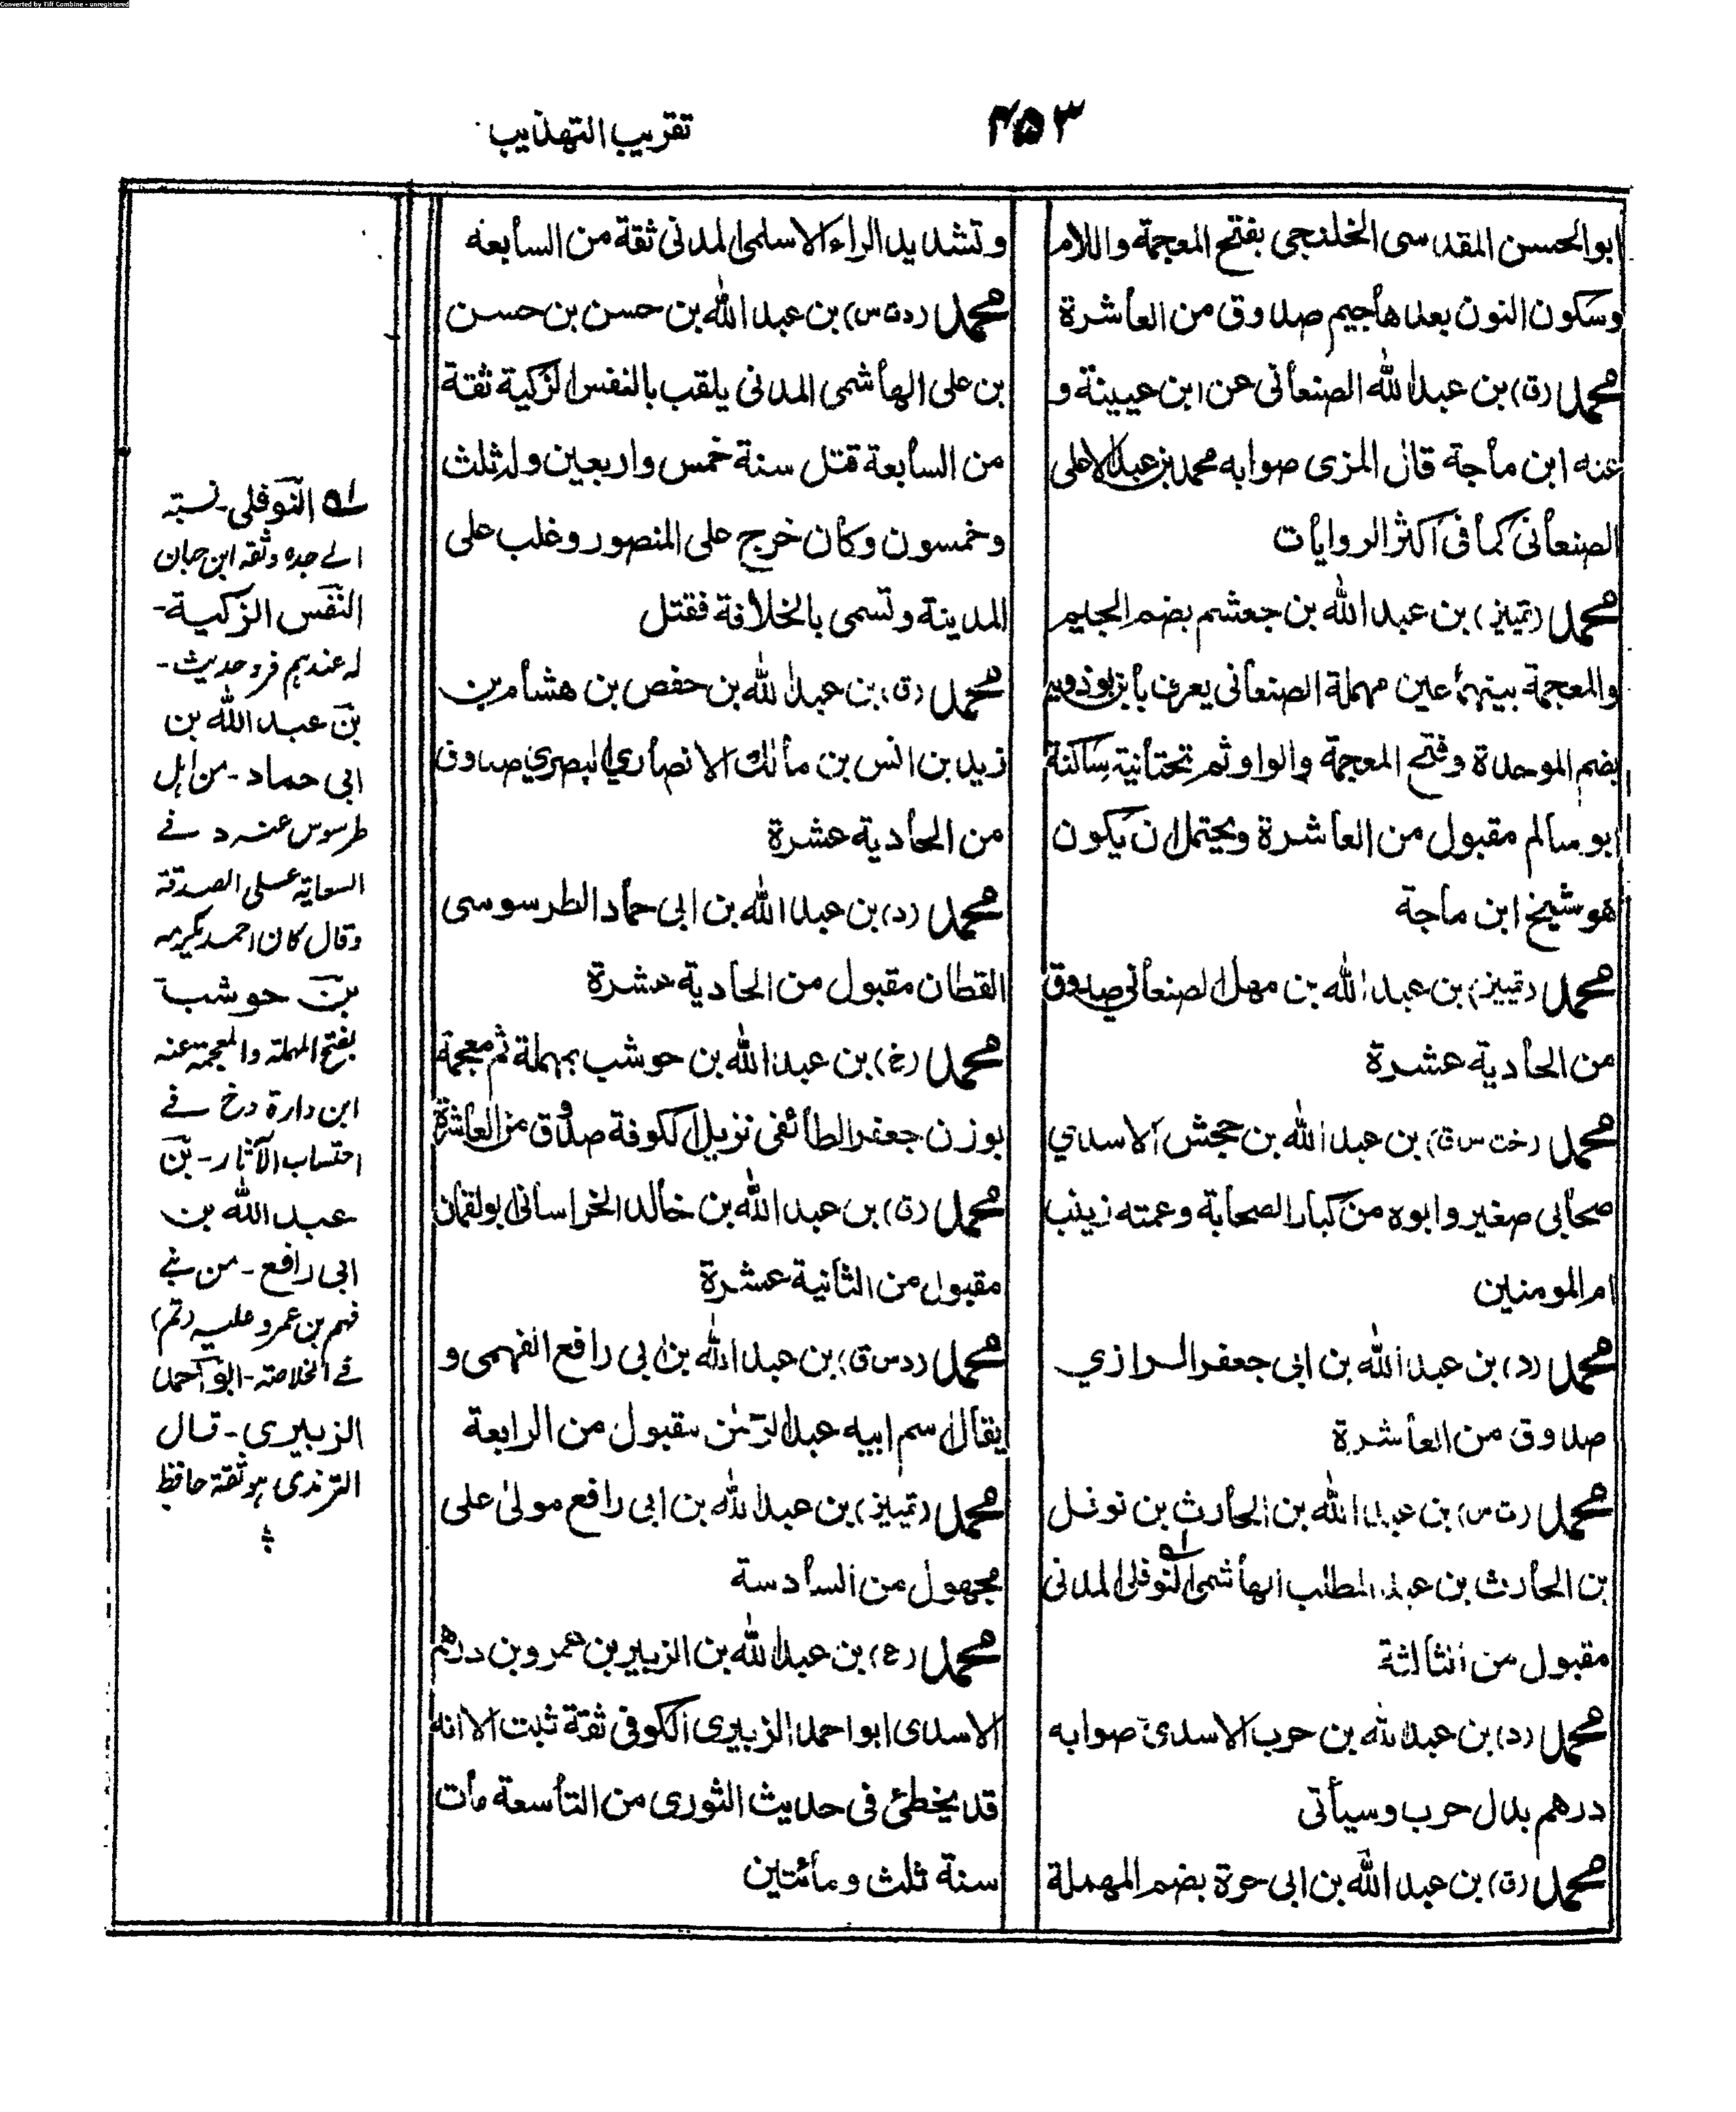 Converted by Tiff Combine - unregistered
۴۵۳
تقريب التهذيب
ابوالحسن المقدسى الخلنجى بفتح المعجمة واللام
وسكون النون بعدها جيم صدوق من العاشرة
محمد (ق) بن عبد الله الصنعانى عن ابن عيينة و
عنه ابن ماجة قال المزى صوابه محمد بن عبد الاعلى
الصنعانى كما فى اكثر الروايات
محمد (تمييز) بن عبد الله بن جعشم بضم الجيم
والمعجمة بينهما عين مهملة الصنعانى يعرف بابن بوذويه
بضم الموحدة وفتح المعجمة والواو ثم تحتانية ساكنة
ابو سالم مقبول من العاشرة ويحتمل ان يكون
هو شيخ ابن ماجة
محمد (تمييز) بن عبد الله بن مهل الصنعانى صدوق
من الحادية عشرة
محمد (خت س ق) بن عبد الله بن جحش الاسدي
صحابى صغير وابوه من كبار الصحابة وعمته زينب
ام المومنين
محمد (د) بن عبد الله بن ابى جعفر الرازي
صدوق من العاشرة
محمد (ت س) بن عبد الله بن الحارث بن نوفل
بن الحارث بن عبد المطلب الهاشمى النوفلى المدنى
مقبول من الثالثة
محمد (د) بن عبد الله بن حرب الاسدى صوابه
درهم بدل حرب وسيأتى
محمد (ق) بن عبد الله بن ابى حرة بضم المهملة
وتشديد الراء الاسلمى المدنى ثقة من السابعه
محمد (د ت س) بن عبد الله بن حسن بن حسن
بن على الهاشمى المدنى يلقب بالنفس الزكية ثقة
من السابعة قتل سنة خمس واربعين وله ثلث
وخمسون وكان خرج على المنصور وغلب على
المدينة وتسمى بالخلافة فقتل
محمد (ق) بن عبد الله بن حفص بن هشام بن
زيد بن انس بن مالك الانصاري البصري صدوق
من الحادية عشرة
محمد (د) بن عبد الله بن ابى حماد الطرسوسى
القطان مقبول من الحادية عشرة
محمد (خ) بن عبد الله بن حوشب بمهملة ثم معجمة
بوزن جعفر الطائفى نزيل الكوفة صدوق من العاشرة
محمد (ق) بن عبد الله بن خالد الخراسانى ابو لقمان
مقبول من الثانية عشرة
محمد (د س ق) بن عبد الله بن ابى رافع الفهمى و
يقال اسم ابيه عبد الرحمٰن مقبول من الرابعة
محمد (تمييز) بن عبد الله بن ابى رافع مولىٰ على
مجهول من السادسة
محمد (ع) بن عبد الله بن الزبير بن عمرو بن درهم
الاسدى ابو احمد الزبيرى الكوفى ثقة ثبت الا انه
قد يخطئ فى حديث الثورى من التاسعة مات
سنة ثلث ومائتين
لـه النوفلى - نسبتہ
الے جدہ وثقه ابن حبان
النفس الزكية -
لہ عندہم فرد حديث -
بن عبد الله بن
ابى حماد - من اہل
طرسوس عنہ د فے
السعاية على الصدقة
وقال كان احمد يكرمہ
بن حوشب
بفتح المهملة والمعجمة عنہ
ابن دارة (خ) فے
احتساب الآثار - بن
عبد الله بن
ابى رافع - من بنے
فہم بن عمرو عليہ (تم)
فے الخلاصة - ابو احمد
الزبيرى - قال
الترمذى ہو ثقة حافظ